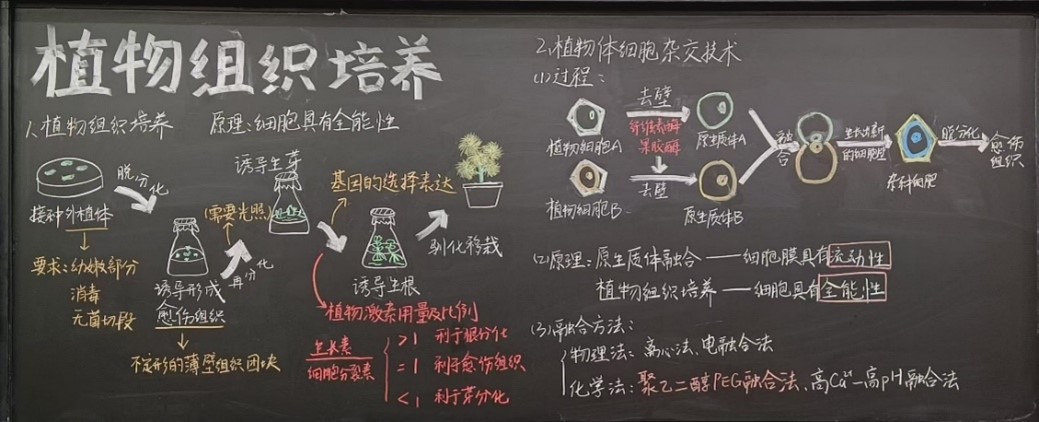 植物组织培养
1、植物组织培养 原理:细胞具有全能性
接种外植体
脱分化
要求:幼嫩部分
消毒
无菌切段
诱导形成
愈伤组织
不定形的薄壁组织团块
再分化
(需要光照)
诱导生芽
基因的选择表达
诱导生根
驯化移栽
植物激素用量及比例
生长素
细胞分裂素
>1 利于根分化
=1 利于愈伤组织
<1 利于芽分化
2、植物体细胞杂交技术
(1)过程:
植物细胞A
去壁
纤维素酶
果胶酶
原生质体A
植物细胞B
去壁
原生质体B
融合
生长出新
的细胞壁
杂种细胞
脱分化
愈伤
组织
(2)原理:原生质体融合——细胞膜具有流动性
植物组织培养——细胞具有全能性
(3)融合方法:
物理法:离心法、电融合法
化学法:聚乙二醇PEG融合法、高Ca²⁺—高pH融合法